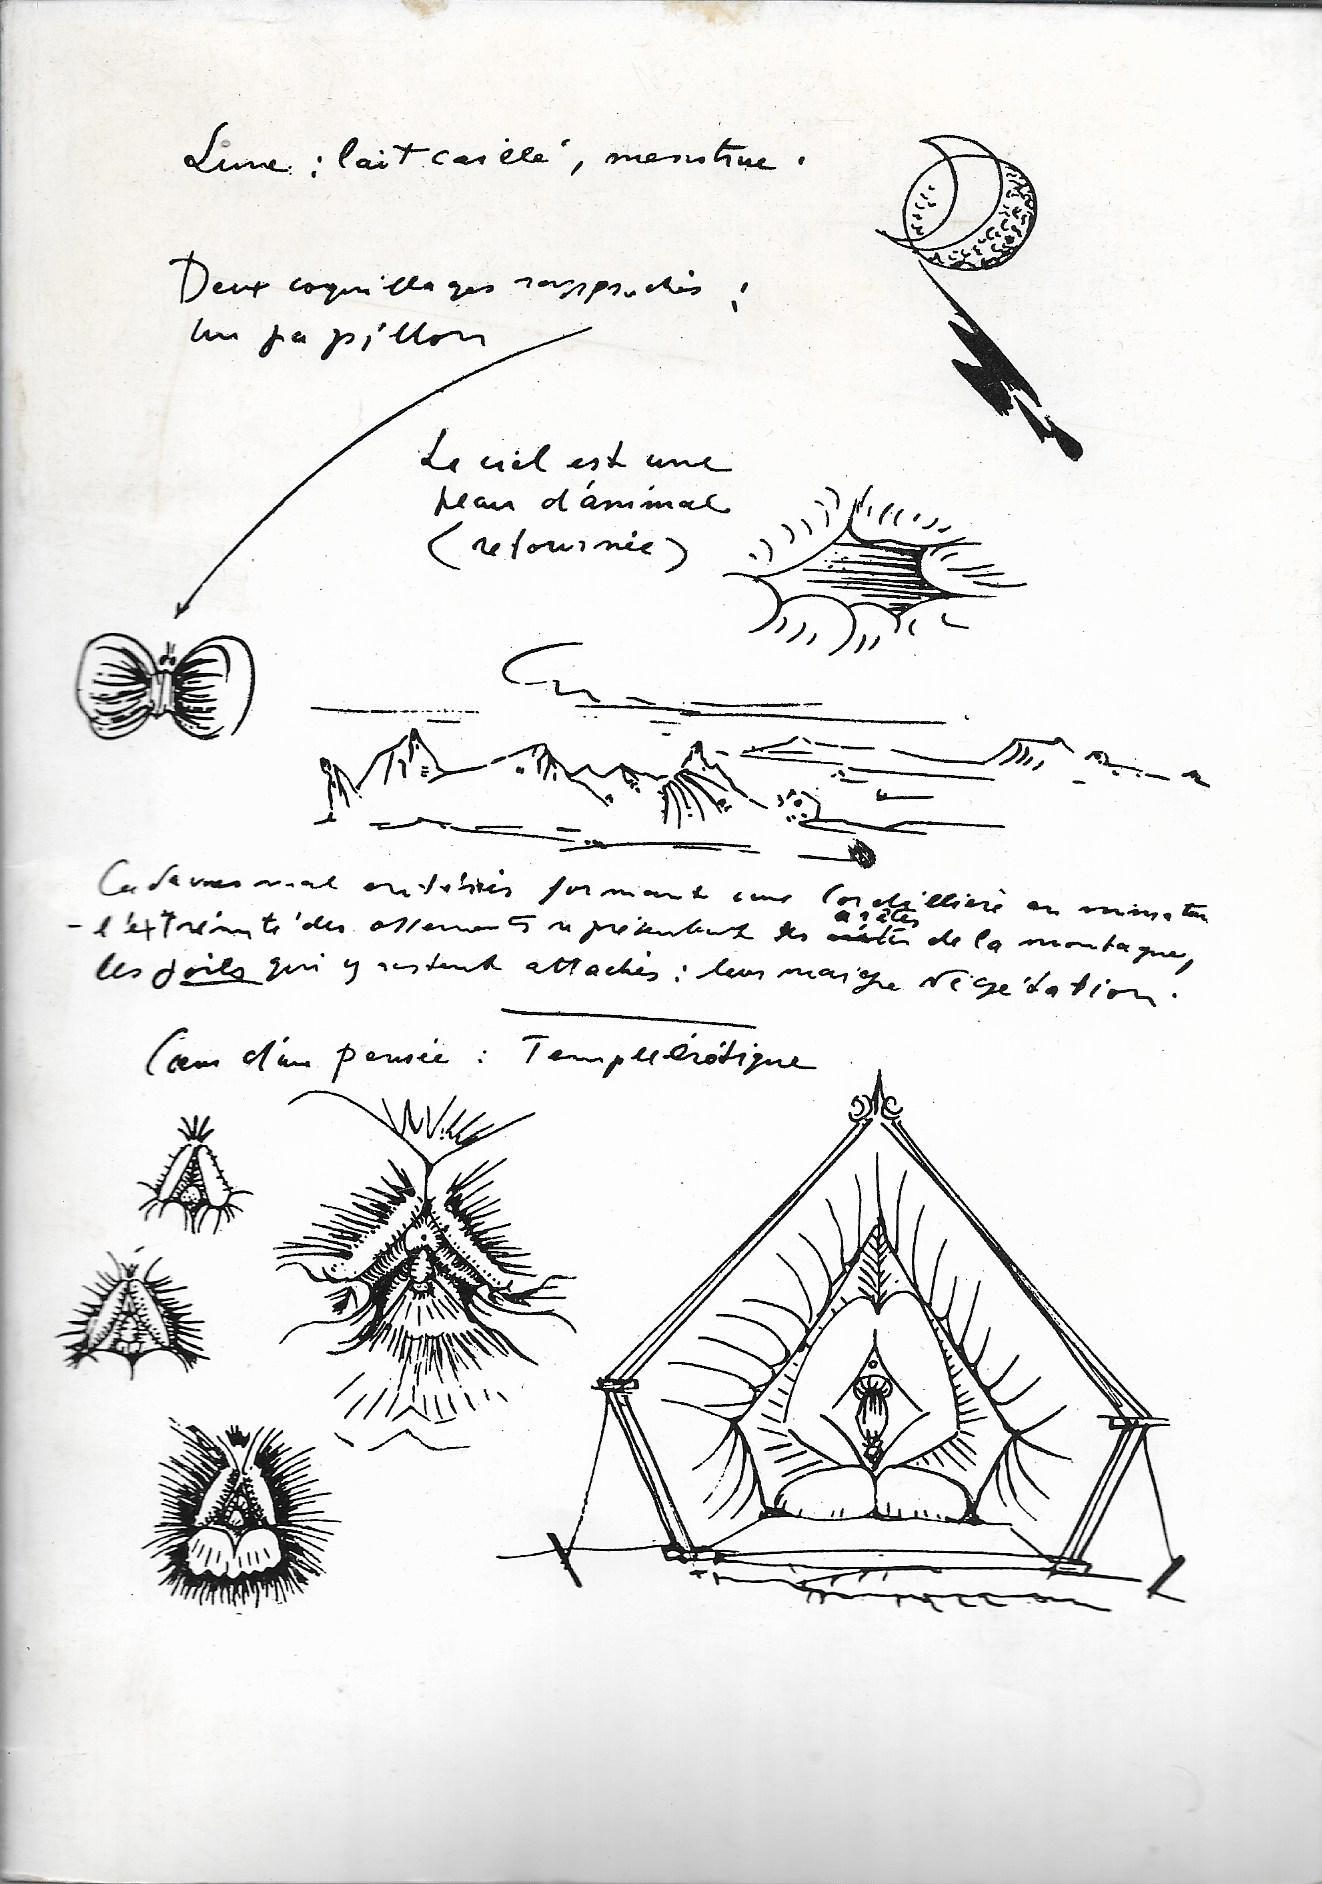 Lune : lait caillé, menstrue.
Deux coquillages rapprochés :
un papillon
Le ciel est une
peau d'animal
(retournée)
Cadavres mal enterrés formant une Cordillière en miniature
arêtes
- l'extrémité des ossements représentent les de la montagne,
les poils qui y restent attachés : leur maigre végétation.
Cœur d'une pensée : Temple érotique